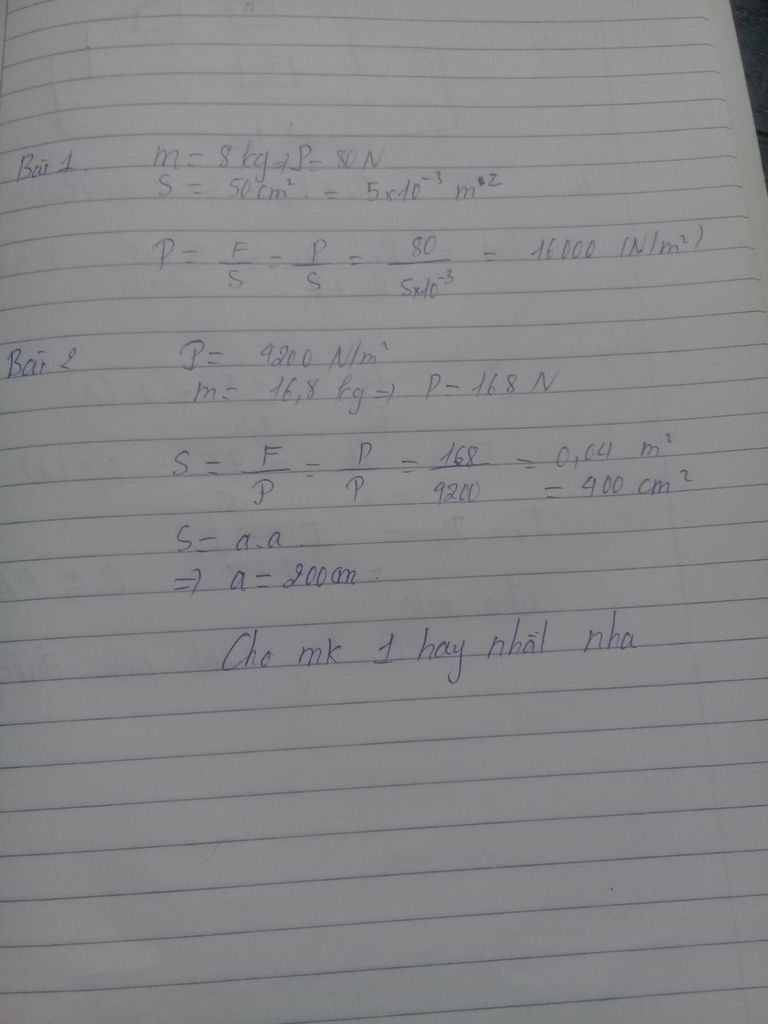 Bài 1. m = 8 kg => P = 80 N
S = 50 cm² = 5x10⁻³ m²
P = F/S = P/S = 80/5x10⁻³ = 16000 (N/m²)
Bài 2 P = 4200 N/m²
m = 16,8 kg => P = 168 N
S = F/P = P/P = 168/4200 = 0,04 m²
= 400 cm²
S = a.a
=> a = 200cm.
Cho mk 1 hay nhất nha